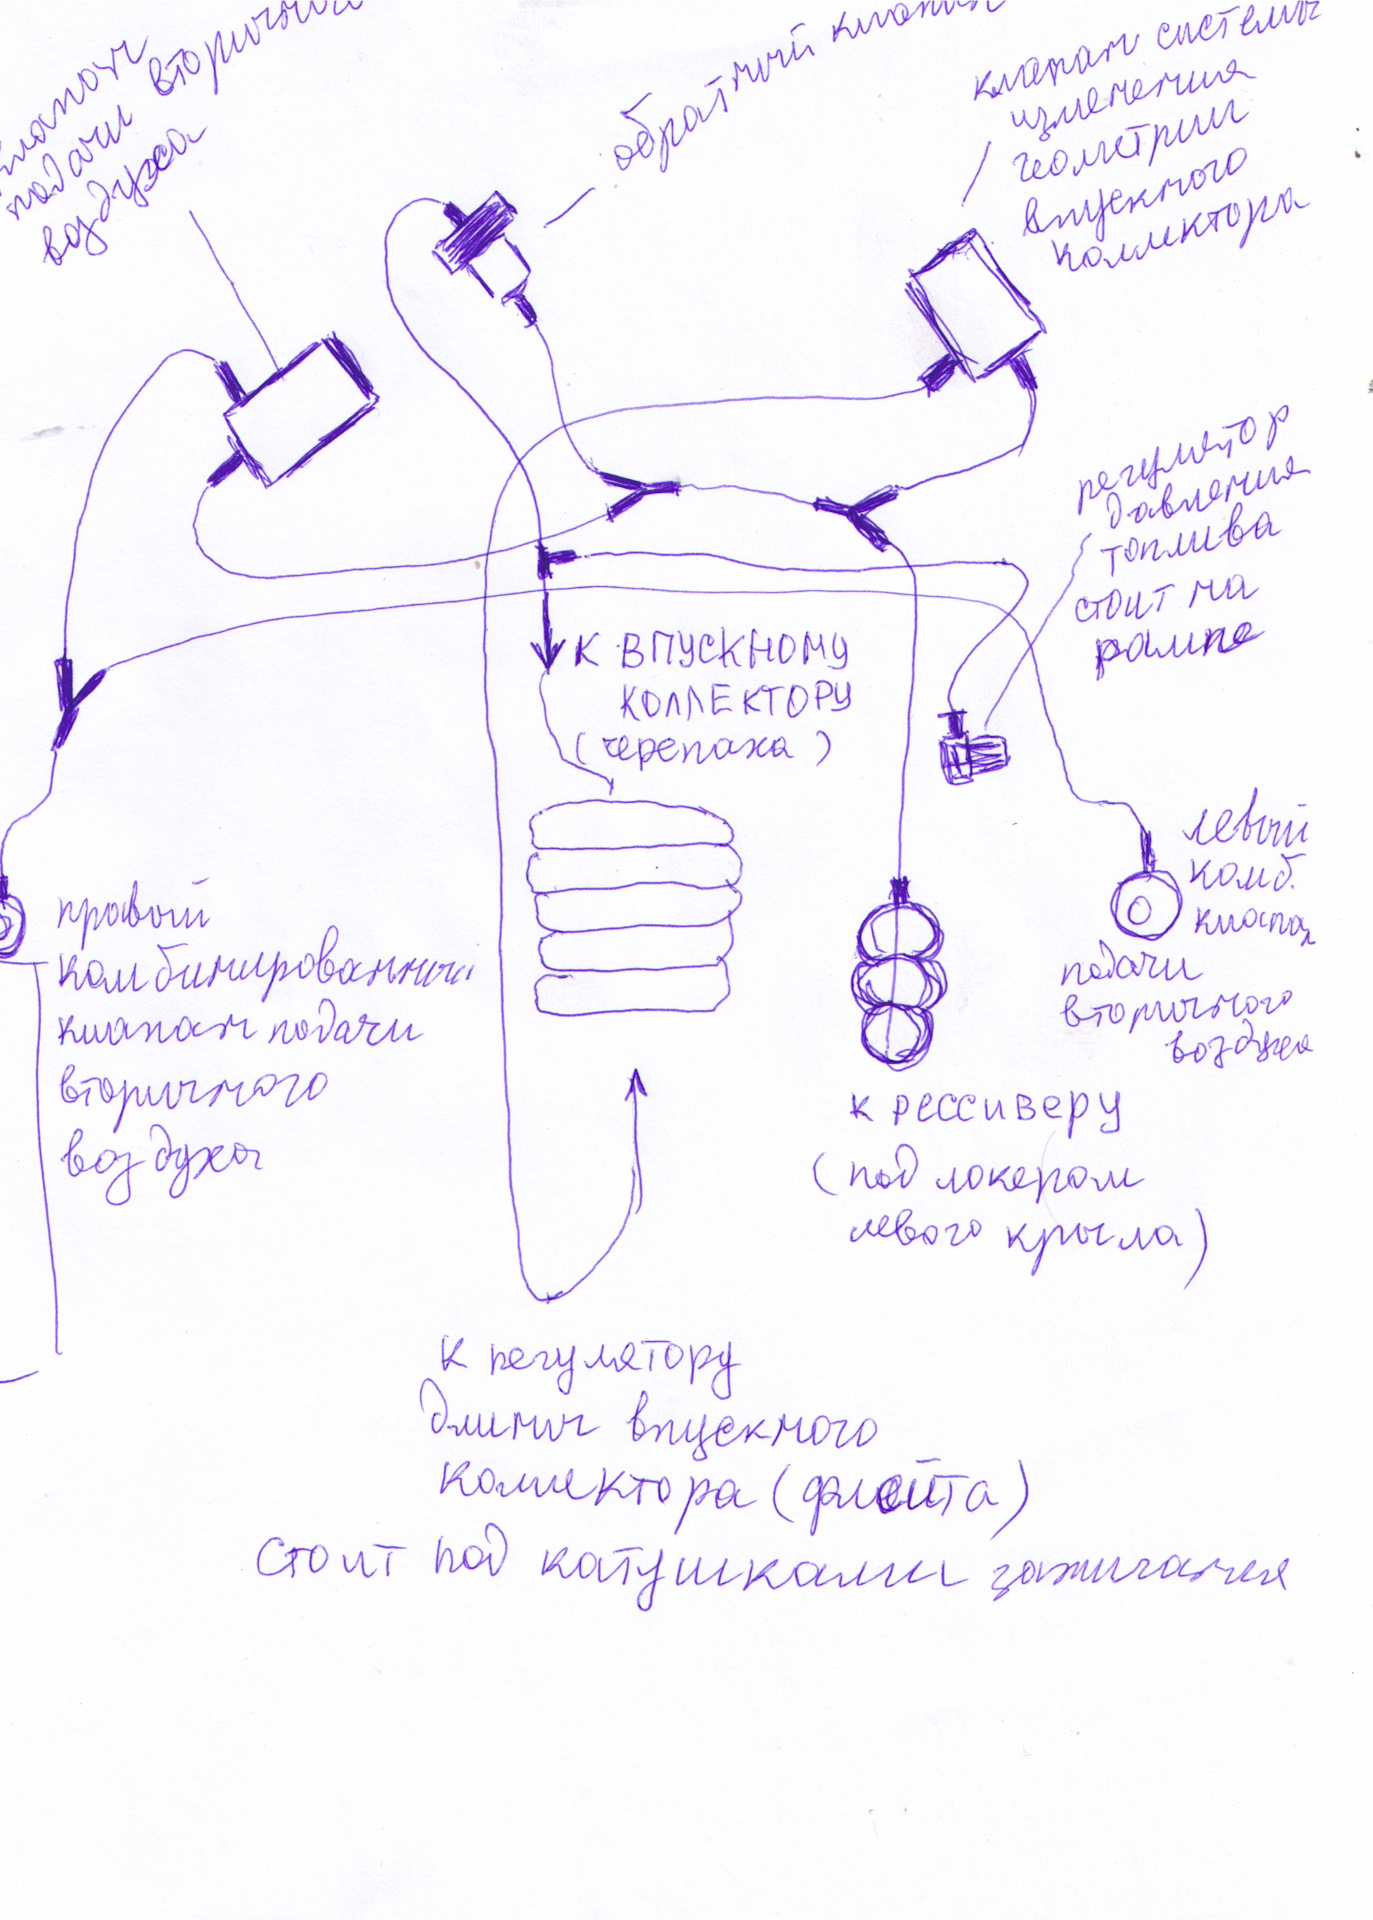 клапан
подачи вторичный
воздуха
обратный клапан
клапан системы
изменения
геометрии
впускного
коллектора
регулятор
давления
топлива
стоит на
рампе
К ВПУСКНОМУ
КОЛЛЕКТОРУ
(черепаха)
левый
комб.
клапан
подачи
вторичного
воздуха
правый
комбинированный
клапан подачи
вторичного
воздуха
К РЕССИВЕРУ
(под локером
левого крыла)
К регулятору
длины впускного
коллектора (флейта)
стоит под катушками зажигания